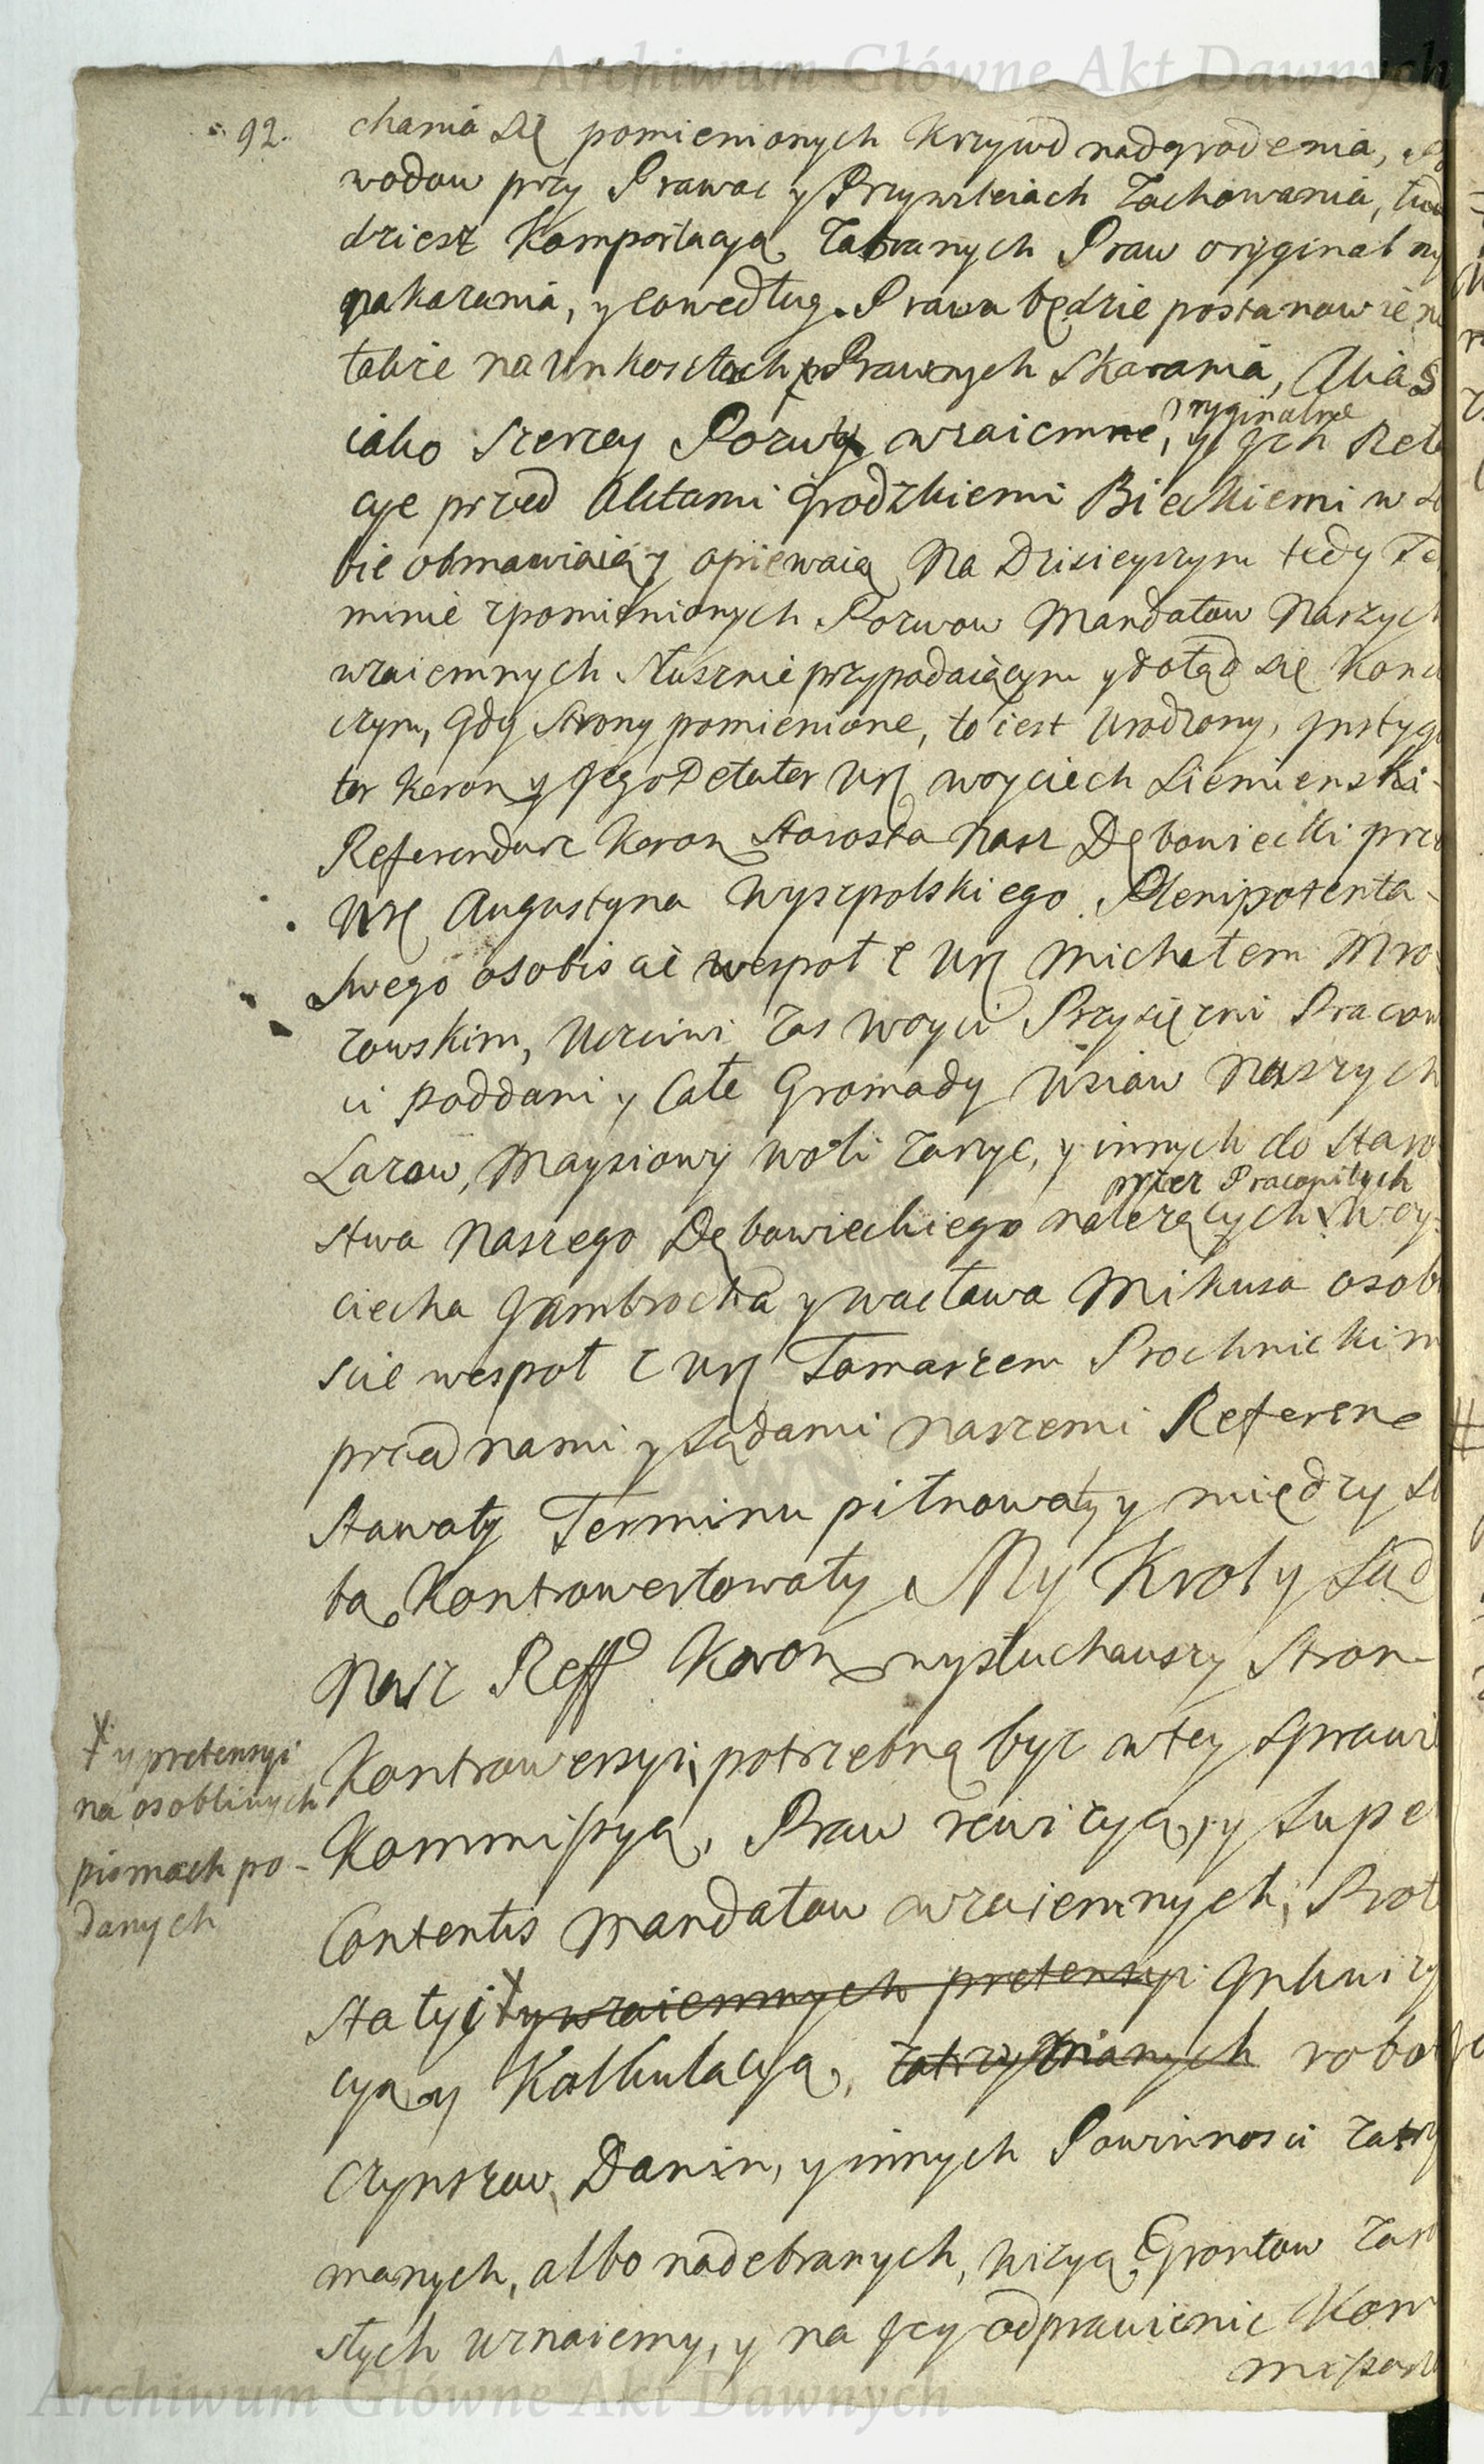 Archiwum Główne Akt Dawnych
92.
chania się pomienionych Krzywd nadgrodzenia,
wodow przy Prawac y Przywileiach Zachowania, tu
dziesz Komportacyą Zabranych Praw oryginalny
nakazania, y cowedług Prawa będzie postanowien
takze na Unkosztach Prawnych Skarania, Alias
iako Szerzey Pozwy wzaiemne, y Jch Rela
oryginalne
cye przed Aktami Grodzkiemi Bieckiemi w So
bie obmawiaią y opiewaią Na Dzisieyszym tedy Te
minie zpomienionych Pozwow Mandatow Naszych
wzaiemnych słusznie przypadaiącym y dotąd się Kon
czym, Gdy Strony pomienione, to iest Urodzony, Jnstyga
tor Koron y Jego Delator Ur Woyciech Siemienski
Referendarz Koron Starosta Nasz Dębowiecki prze
Ur Augustyna Wyszpolskiego Plenipotenta
Swego osobiscie wespoł z Ur Michałem Mro
zowskim, Uczciwi Zas Woyci Przysięzni Pracow
ci poddani y Całe Gromady Wsiow Naszych
Lazow, Maysiowy Woli Zarzyc, y innych do Staro
stwa Naszego Dębowieckiego nalezących Woy
przez Pracowitych
ciecha Gambrocka y Wacława Mikusa osobi
scie wespoł z Ur Tomaszem Prochnickim
przed nami y Sądami Naszemi Referen
Stawały Terminu pilnowały y między So
ba Kontrowertowały My Krol y Sąd
Nasz Reff Koron wysłuchawszy Stron
Kontrowersyi, potrzebną byc w tey Sprawie
Kommissyą, Praw rewizyą, y Supe
Contentis Mandatow wzaiemnych, Prot
statyi y wzaiemnych pretensyi Jnkwizy
X y pretensyi
na osobliwych
pismach po-
danych
cyą y Kalkulacyą, Zatrzymanych robo
Czynszow, Danin, y innych Powinnosci Zatrzy
manych, albo nadebranych, wizyą Grontow Zasz
słych uznaiemy, y na Jey odprawienie Kom
missar
Archiwum Główne Akt Dawnych